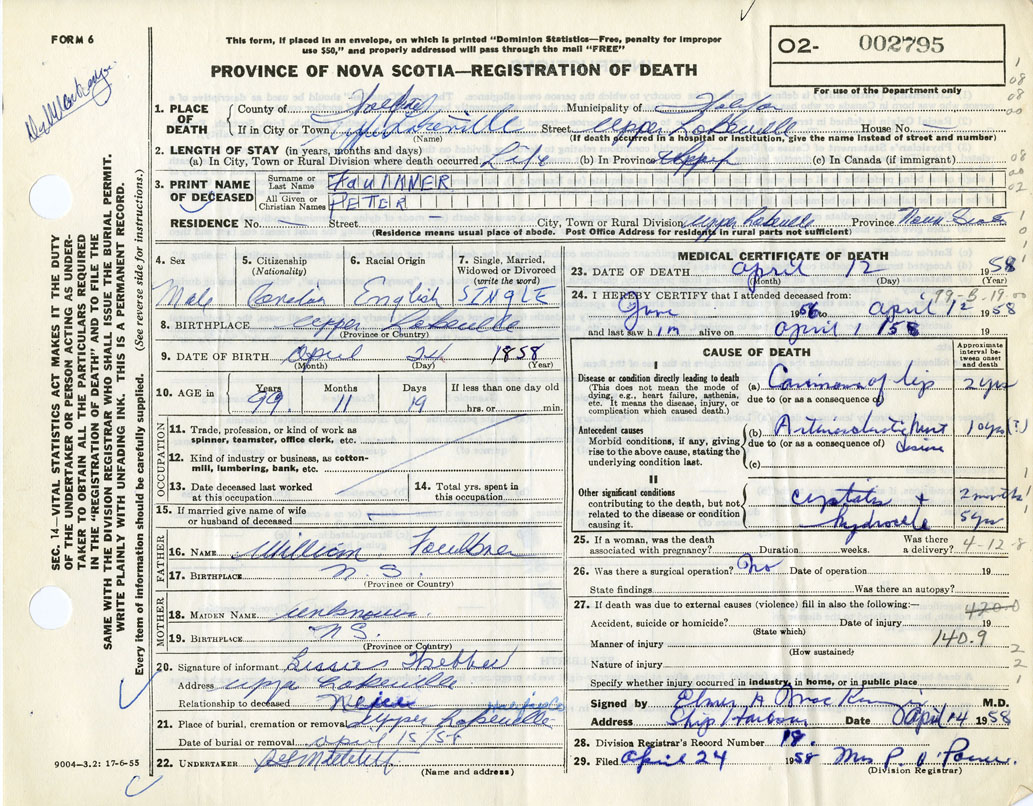 FORM 6
This form, if placed in an envelope, on which is printed "Dominion Statistics—Free, penalty for improper
use $50," and properly addressed will pass through the mail "FREE"
O2- 002795
PROVINCE OF NOVA SCOTIA—REGISTRATION OF DEATH
For use of the Department only
1. PLACE OF DEATH
County of Halifax Municipality of Halifax
If in City or Town Upper Lakeville Street Upper Lakeville House No.
(Name) (If death occurred in a hospital or institution, give the name instead of street and number)
2. LENGTH OF STAY (in years, months and days)
(a) In City, Town or Rural Division where death occurred Life (b) In Province (c) In Canada (if immigrant)
3. PRINT NAME OF DECEASED
Surname or Last Name FAULKNER
All Given or Christian Names PETER
RESIDENCE No. Street City, Town or Rural Division Upper Lakeville Province Nova Scotia
(Residence means usual place of abode. Post Office Address for residents in rural parts not sufficient)
4. Sex Male
5. Citizenship (Nationality) Canadian
6. Racial Origin English
7. Single, Married, Widowed or Divorced (write the word) SINGLE
8. BIRTHPLACE Upper Lakeville
(Province or Country)
9. DATE OF BIRTH April 24 1858
(Month) (Day) (Year)
10. AGE in Years 99 Months 11 Days 19 If less than one day old hrs. or min.
OCCUPATION
11. Trade, profession, or kind of work as
spinner, teamster, office clerk, etc.
12. Kind of industry or business, as cotton-
mill, lumbering, bank, etc.
13. Date deceased last worked
at this occupation
14. Total yrs. spent in
this occupation
15. If married give name of wife
or husband of deceased
FATHER
16. NAME William Faulkner
17. BIRTHPLACE N.S.
(Province or Country)
MOTHER
18. MAIDEN NAME unknown
19. BIRTHPLACE N.S.
(Province or Country)
20. Signature of informant Bessie Webber
Address Upper Lakeville
Relationship to deceased Neice
21. Place of burial, cremation or removal Upper Lakeville
Date of burial or removal April 15/58
22. UNDERTAKER
(Name and address)
9004—3.2: 17-6-55
MEDICAL CERTIFICATE OF DEATH
23. DATE OF DEATH April 12 1958
(Month) (Day)
24. I HEREBY CERTIFY that I attended deceased from:
June 1956 to April 12 1958
and last saw him alive on April 1/58 19
CAUSE OF DEATH
Approximate interval between onset and death
I
Disease or condition directly leading to death
(This does not mean the mode of
dying, e.g., heart failure, asthenia,
etc. It means the disease, injury, or
complication which caused death.)
(a) Carcinoma of lip 2 yrs
due to (or as a consequence of)
Antecedent causes
Morbid conditions, if any, giving
rise to the above cause, stating the
underlying condition last.
(b) Arteriosclerotic heart disease 10 yrs (?)
due to (or as a consequence of)
(c)
II
Other significant conditions
contributing to the death, but not
related to the disease or condition
causing it.
cystitis + 2 months
hydrocele 5 yrs
25. If a woman, was the death
associated with pregnancy? Duration weeks. Was there a delivery?
4-12-8
26. Was there a surgical operation? No Date of operation 19
State findings Was there an autopsy?
27. If death was due to external causes (violence) fill in also the following:—
420.0
Accident, suicide or homicide? Date of injury 19
(State which)
140.9
Manner of injury
(How sustained)
Nature of injury
Specify whether injury occurred in industry, in home, or in public place
Signed by M.D.
Address Ship Harbour Date April 14 1958
28. Division Registrar's Record Number 18.
29. Filed April 24 1958 Mrs P.
(Division Registrar)
SEC. 14—VITAL STATISTICS ACT MAKES IT THE DUTY
OF THE UNDERTAKER OR PERSON ACTING AS UNDER-
TAKER TO OBTAIN ALL THE PARTICULARS REQUIRED
IN THE "REGISTRATION OF DEATH" AND TO FILE THE
SAME WITH THE DIVISION REGISTRAR WHO SHALL ISSUE THE BURIAL PERMIT.
WRITE PLAINLY WITH UNFADING INK. THIS IS A PERMANENT RECORD.
Every item of information should be carefully supplied. (See reverse side for instructions.)